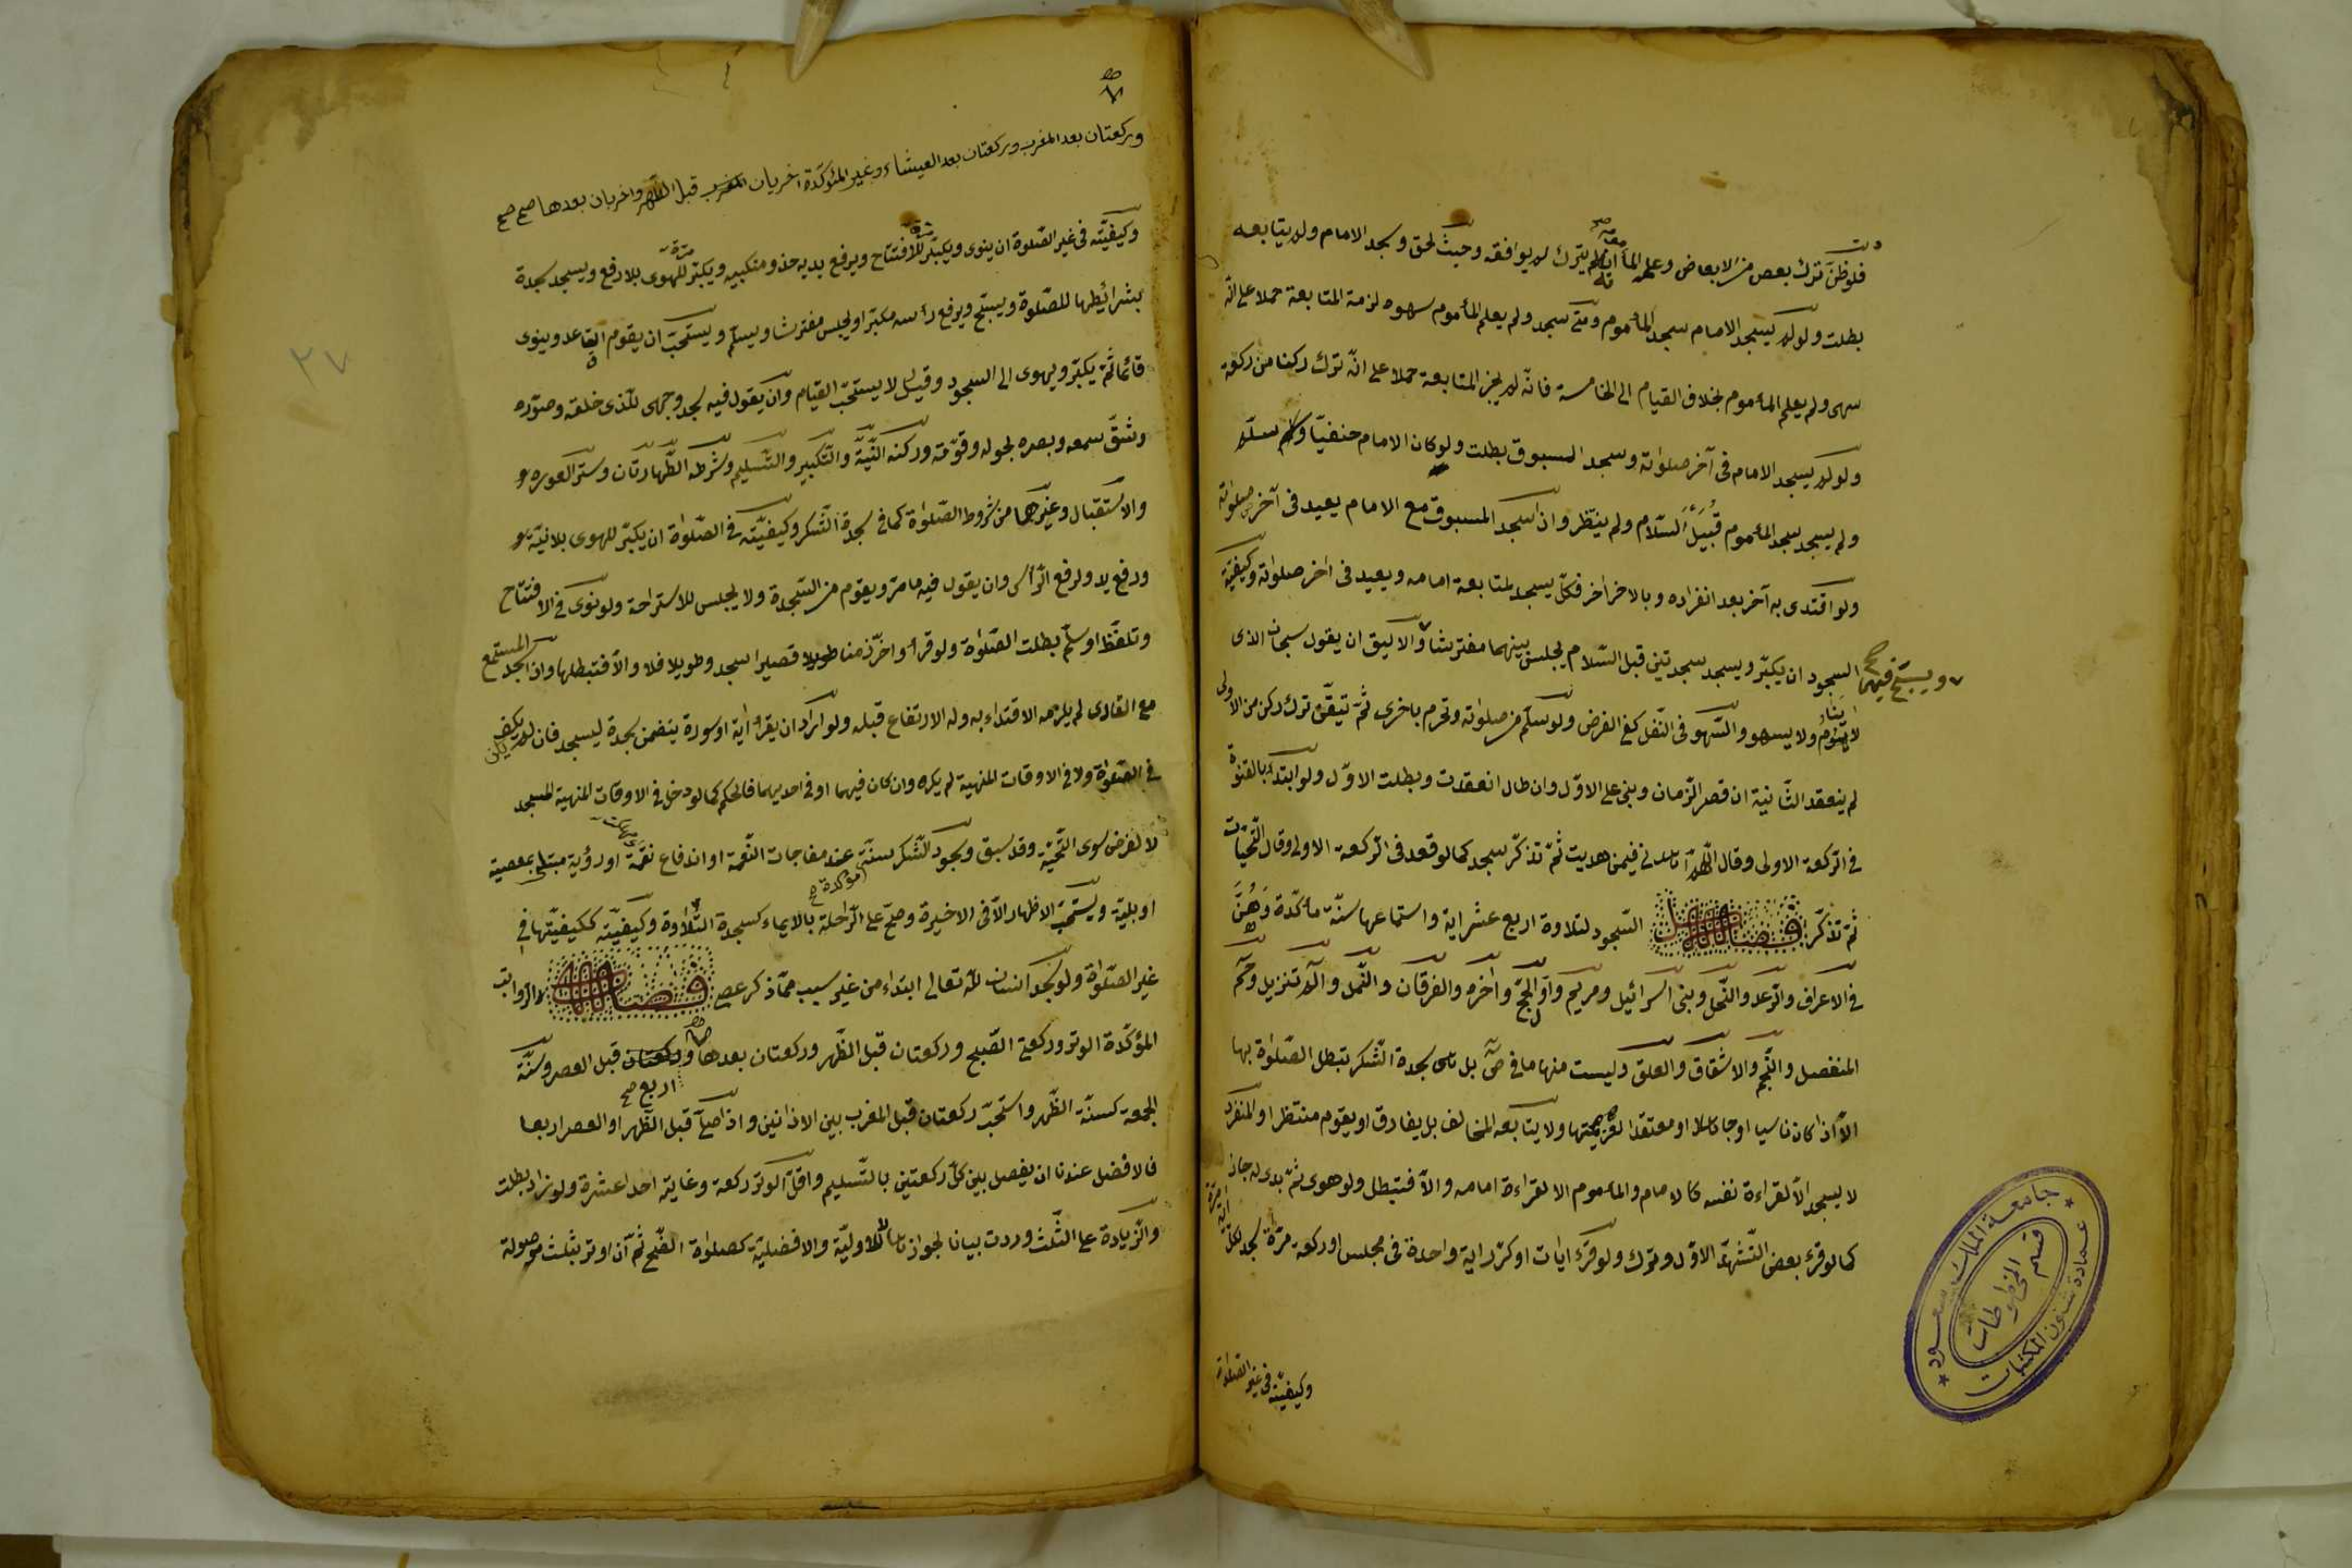 فلو ظن ترك بعض من الابعاض وعلم المأموم انه لم يترك لم يوافقه وحيث لحق وسجد الامام ولم يتابعه
بطلت ولو لم يسجد الامام سجد المأموم ومتى سجد ولم يعلم المأموم سهوه لزمة المتابعة حملا على انّه
سهى ولم يعلم المأموم بخلاف القيام الى الخامسة فانّه لم يجز المتابعة حملا على انّه ترك ركنا من ركعة
ولو لم يسجد الامام فى آخر صلوته وسجد المسبوق بطلت ولو كان الامام حنفيّا وسلّم
ولم يسجد سجد المأموم قُبَيْلَ السّلام ولم ينتظر وان سجد المسبوق مع الامام يعيد فى آخر صلوته
ولو اقتدى به آخر بعد انفراده وبالاخر اخر فكلّ يسجد لمتابعة امامه ويعيد فى اخر صلوته وكيفيّة
السجود ان يكبّر ويسجد سجدتين قبل السّلام يجلس بينهما مفترشا والاليق ان يقول سبحان الذى
ويسبّح فيهما صح
لا ينام ولا يسهو والسّهو فى النّفل كفى الفرض ولو سلّم من صلوته وتحرم باخرى ثمّ تيقّن ترك ركن من الاولى
لم ينعقد الثّانية ان قصر الزّمان وبنى على الاوّل وان طال انعقدت وبطلت الاوّل ولو ابتدء بالقنوة
فى الرّكعة الاولى وقال اللّهم اهدنى فيمن هديت ثمّ تذكّر سجد كما لو قعد فى الرّكعة الاولى وقال التّحيّات
ثم تذكّر فصل السّجود لتلاوة اربع عشر اية واستماعها سنّة مأكّدة وَهُنَّ
فى الاعراف والرّعد والنّحل وبنى اسرائيل ومريم واوّل الحجّ واخره والفرقان والنّمل والم تنزيل وحم
المنفصل والنّجم والانشقاق والعلق وليست منها ما فى صٓ بل هى سجدة الشّكر تبطل الصّلوة بها
الاّ اذا كان ناسيا او جاهلا او معتقدا لعزيمتها ولا يتابعه المخالف بل يفارق او يقوم منتظرا والمنفرد
لا يسجد الاّ لقراءة نفسه كالامام والمأموم الا لقراءة امامه والاّ فتبطل ولو هوى ثمّ بدى له جاز
كما لو قرء بعض التّشهّد الاوّل وترك ولو قرء ايات او كرّر اية واحدة فى مجلس او ركعة مرّة سجد لكلّ
اية مرّة
وكيفيّته فى غير الصّلوة
جامعة الملك سعود
عمادة شئون المكتبات
قسم المخطوطات
وركعتان بعد المغرب وركعتان بعد العشاء وغير المؤكّدة اخريان قبل الظهر واخريان بعدها صح صح
٢٧
وكيفيّته فى غير الصّلوة ان ينوى ويكبّر للافتتاح ويرفع يديه حذو منكبيه ويكبّر للهوى بلا رفع ويسجد سجدة
بشرائطها للصّلوة ويسبّح ويرفع رأسه مكبّرا ويجلس مفترشا ويسلّم ويستحبّ ان يقوم القاعد وينوى
قائما ثمّ يكبّر ويهوى الى السجود وقيل لا يستحبّ القيام وان يقول فيه سجد وجهى للّذى خلقه وصوّره
وشقّ سمعه وبصره بحوله وقوّته وركنه النّيّة والتّكبير والتّسليم وشرطه الطّهارتان وستر العورة
والاستقبال وغيرها من شروط الصّلوة كما فى سجدة الشّكر وكيفيّته فى الصّلوة ان يكبّر للهوى بلا نيّة
ورفع يد ولرفع الرّأس وان يقول فيه ما مرّ ويقوم من السّجدة ولا يجلس للاستراحة ولو نوى فى الافتتاح
وتلفّظ او سلّم بطلت الصّلوة ولو قرأ واخّر زمنا قصيرا سجد وطويلا فلا والاّ فتبطلها واذا سجد المستمع
مع القارى لم يلزمه الاقتداء به وله الارتفاع قبله ولو اراد ان يقراء اية او سورة يتضمن سجدة ليسجد فان لم يكن
فى الصّلوة ولا فى الاوقات المنهية لم يكره وان كان فيهما او فى احديهما فالحكم كما لو دخل فى الاوقات المنهية المسجد
لا لغرض سوى التّحيّة وقد سبق وسجود الشّكر سنّة عند مفاجات النّعمة او اندفاع نقمة او رؤية مبتلى بمعصية
مؤكدة صح
او بليّة ويستحبّ الاظهار الاّ فى الاخيرة وصحّ على الرّاحلة بالايماء كسجدة التّلاوة وكيفيّته ككيفيّتها فى
غير الصّلوة ولو سجد انسان للّه تعالى ابتداء من غير سبب ممّا ذكر عصى فصل الرّواتب
المؤكّدة الوتر وركعتى الصّبح وركعتان قبل الظّهر وركعتان بعدها وركعتان قبل العصر وسنّة
اربع صح
الجمعة كسنّة الظّهر واستحبّ ركعتان قبل المغرب بين الاذانين واذا صلّى قبل الظّهر او العصر اربعا
فالافضل عندنا ان يفصل بين كلّ ركعتين بالتّسليم واقلّ الوتر ركعة وغايته احد اعشرة ولو زاد بطلت
والزّيادة على الثّلث وردت بيانا لجوازها لا لاوليّة والافضليّة كصلوة الضّحى ثمّ ان اوتر بثلث موصولة